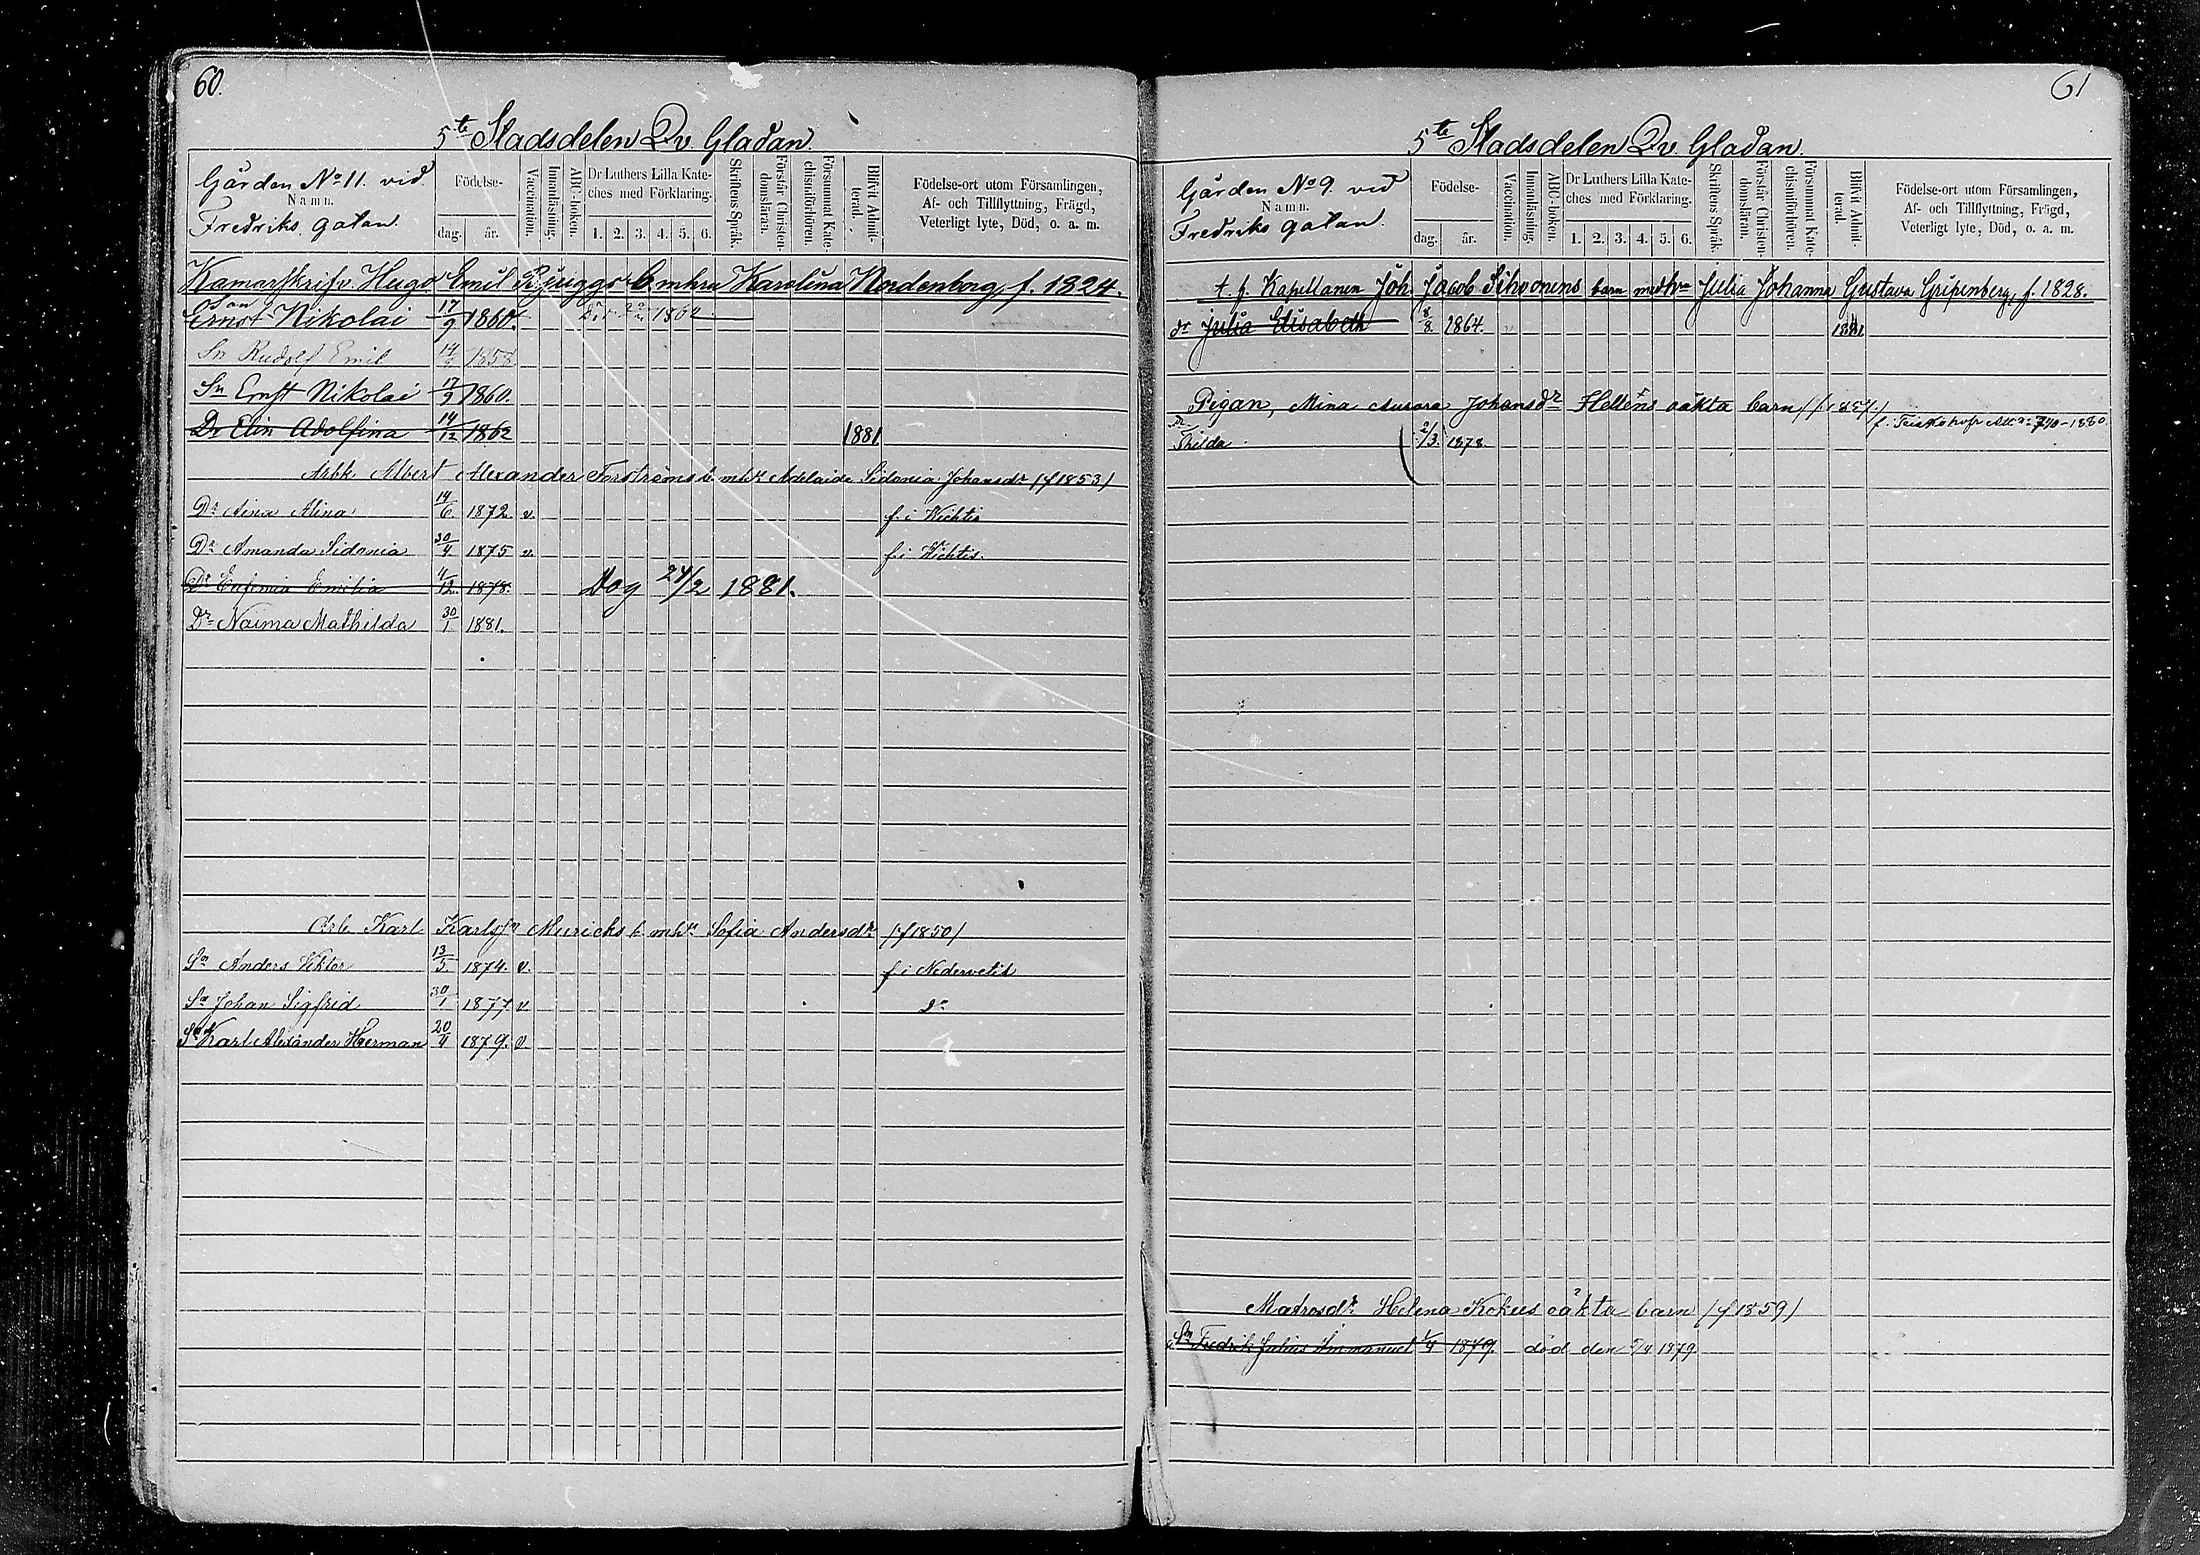 60.
5te Stadsdelen Qv. Gladan.
Gården No 11. vid
Namn.
Fredriks gatan.
Födelse-
dag. år.
Vaccination.
Innanläsning.
ABC-boken.
Dr Luthers Lilla Kate-
ches med Förklaring.
1. 2. 3. 4. 5. 6.
Skriftens Språk.
Förstår Christen-
domslära.
Försummat Kate-
chismiförhören.
Blifvit Admit-
terad.
Födelse-ort utom Församlingen,
Af- och Tillflyttning, Frägd,
Veterligt lyte, Död, o. a. m.
Kamarskrifv. Hugo Emil b mhra Karolina Nordenborg f. 1824.
Son
Ernst Nikolai 17/9 1860.
Sn Rudolf Emil 1858
Sn Ernst Nikolai 17/9 1860.
Dr Elin Adolfina 14/12 1862 1881
Arbk. Albert Alexander Forströms b. mhr Adelaide Sidonia Johansdr (f 1853)
Dr Aina Alina 14/6. 1872. v. f. i Wichtis
Dr Amanda Sidonia 30/4 1875 v. f. i Wichtis.
Dr Eufemia Emilia 4/12. 1878. Dog 24/2 1881.
Dr Naima Mathilda 30/1 1881.
Arb. Karl Karlsn Muricks b. mhn Sofia Andersdr (f 1850)
Sn Anders Viktor 13/5. 1874. v. f. i Nedervetil
Sn Johan Sigfrid 30/1 1877. v. do
Sn Karl Alexander Herman 20/4 1879. v.
61
5te Stadsdelen Qv. Gladan.
Gården No 9. vid
Namn.
Fredriks gatan.
Födelse-
dag. år.
Vaccination.
Innanläsning.
ABC-boken.
Dr Luthers Lilla Kate-
ches med Förklaring.
1. 2. 3. 4. 5. 6.
Skriftens Språk.
Förstår Christen-
domslära.
Försummat Kate-
chismiförhören.
Blifvit Admit-
terad.
Födelse-ort utom Församlingen,
Af- och Tillflyttning, Frägd,
Veterligt lyte, Död, o. a. m.
t. f. Kapellanen Joh. Jacob Sihvonens barn med hra Julia Johanna Gustava Gripenberg, f. 1828.
dr Julia Elisabeth 8/8. 1864. 1881
Pigan, Mina Aurora Johansdr Helléns oäkta barn
Dr
Thilda 2/3. 1878. 740-1880.
Matrosdr Helena Kokus oäkta barn (f 1859)
Sn Fredrik Julius Immanuel 1/4 1879. död den 5/4 1879.